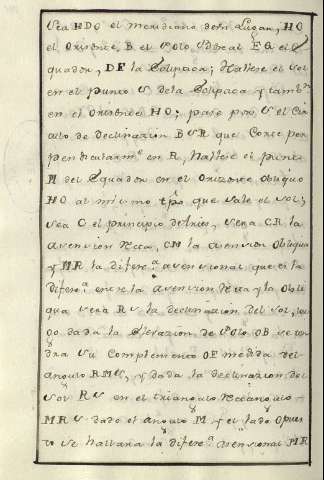 Sea HDO el meridiano deste Lugar, HO
el Orizonte, B el Polo Boreal EQ el E
quador, DF la Ecliptica; Hallese el sol
en el punto S de la Ecliptica y tamb.n
en el Orizonte HO; pase por S el Cir
culo de declinazion BSR que Corte per
pendicularm.te en R, hallese el punto
M del Equador en el Orizonte obliquo
HO al mismo tpo que sale el sol;
sea C el principio de Aries, sera CR la
asension Recta, CM la asension Obliqua
y MR la difere.a asensional que es la
difere.a entre la asension Recta y la Obli
qua sera RS la declinazion del sol, lue
go dada la Elevazion de Polo OB se ten
dra su Complemento OE medida del
angulo RMS, y dada la declinazion del
sol RS en el triangulo Rectangulo
MRS dado el angulo M y el lado Opues
to se hallara la difere.a asensional MR